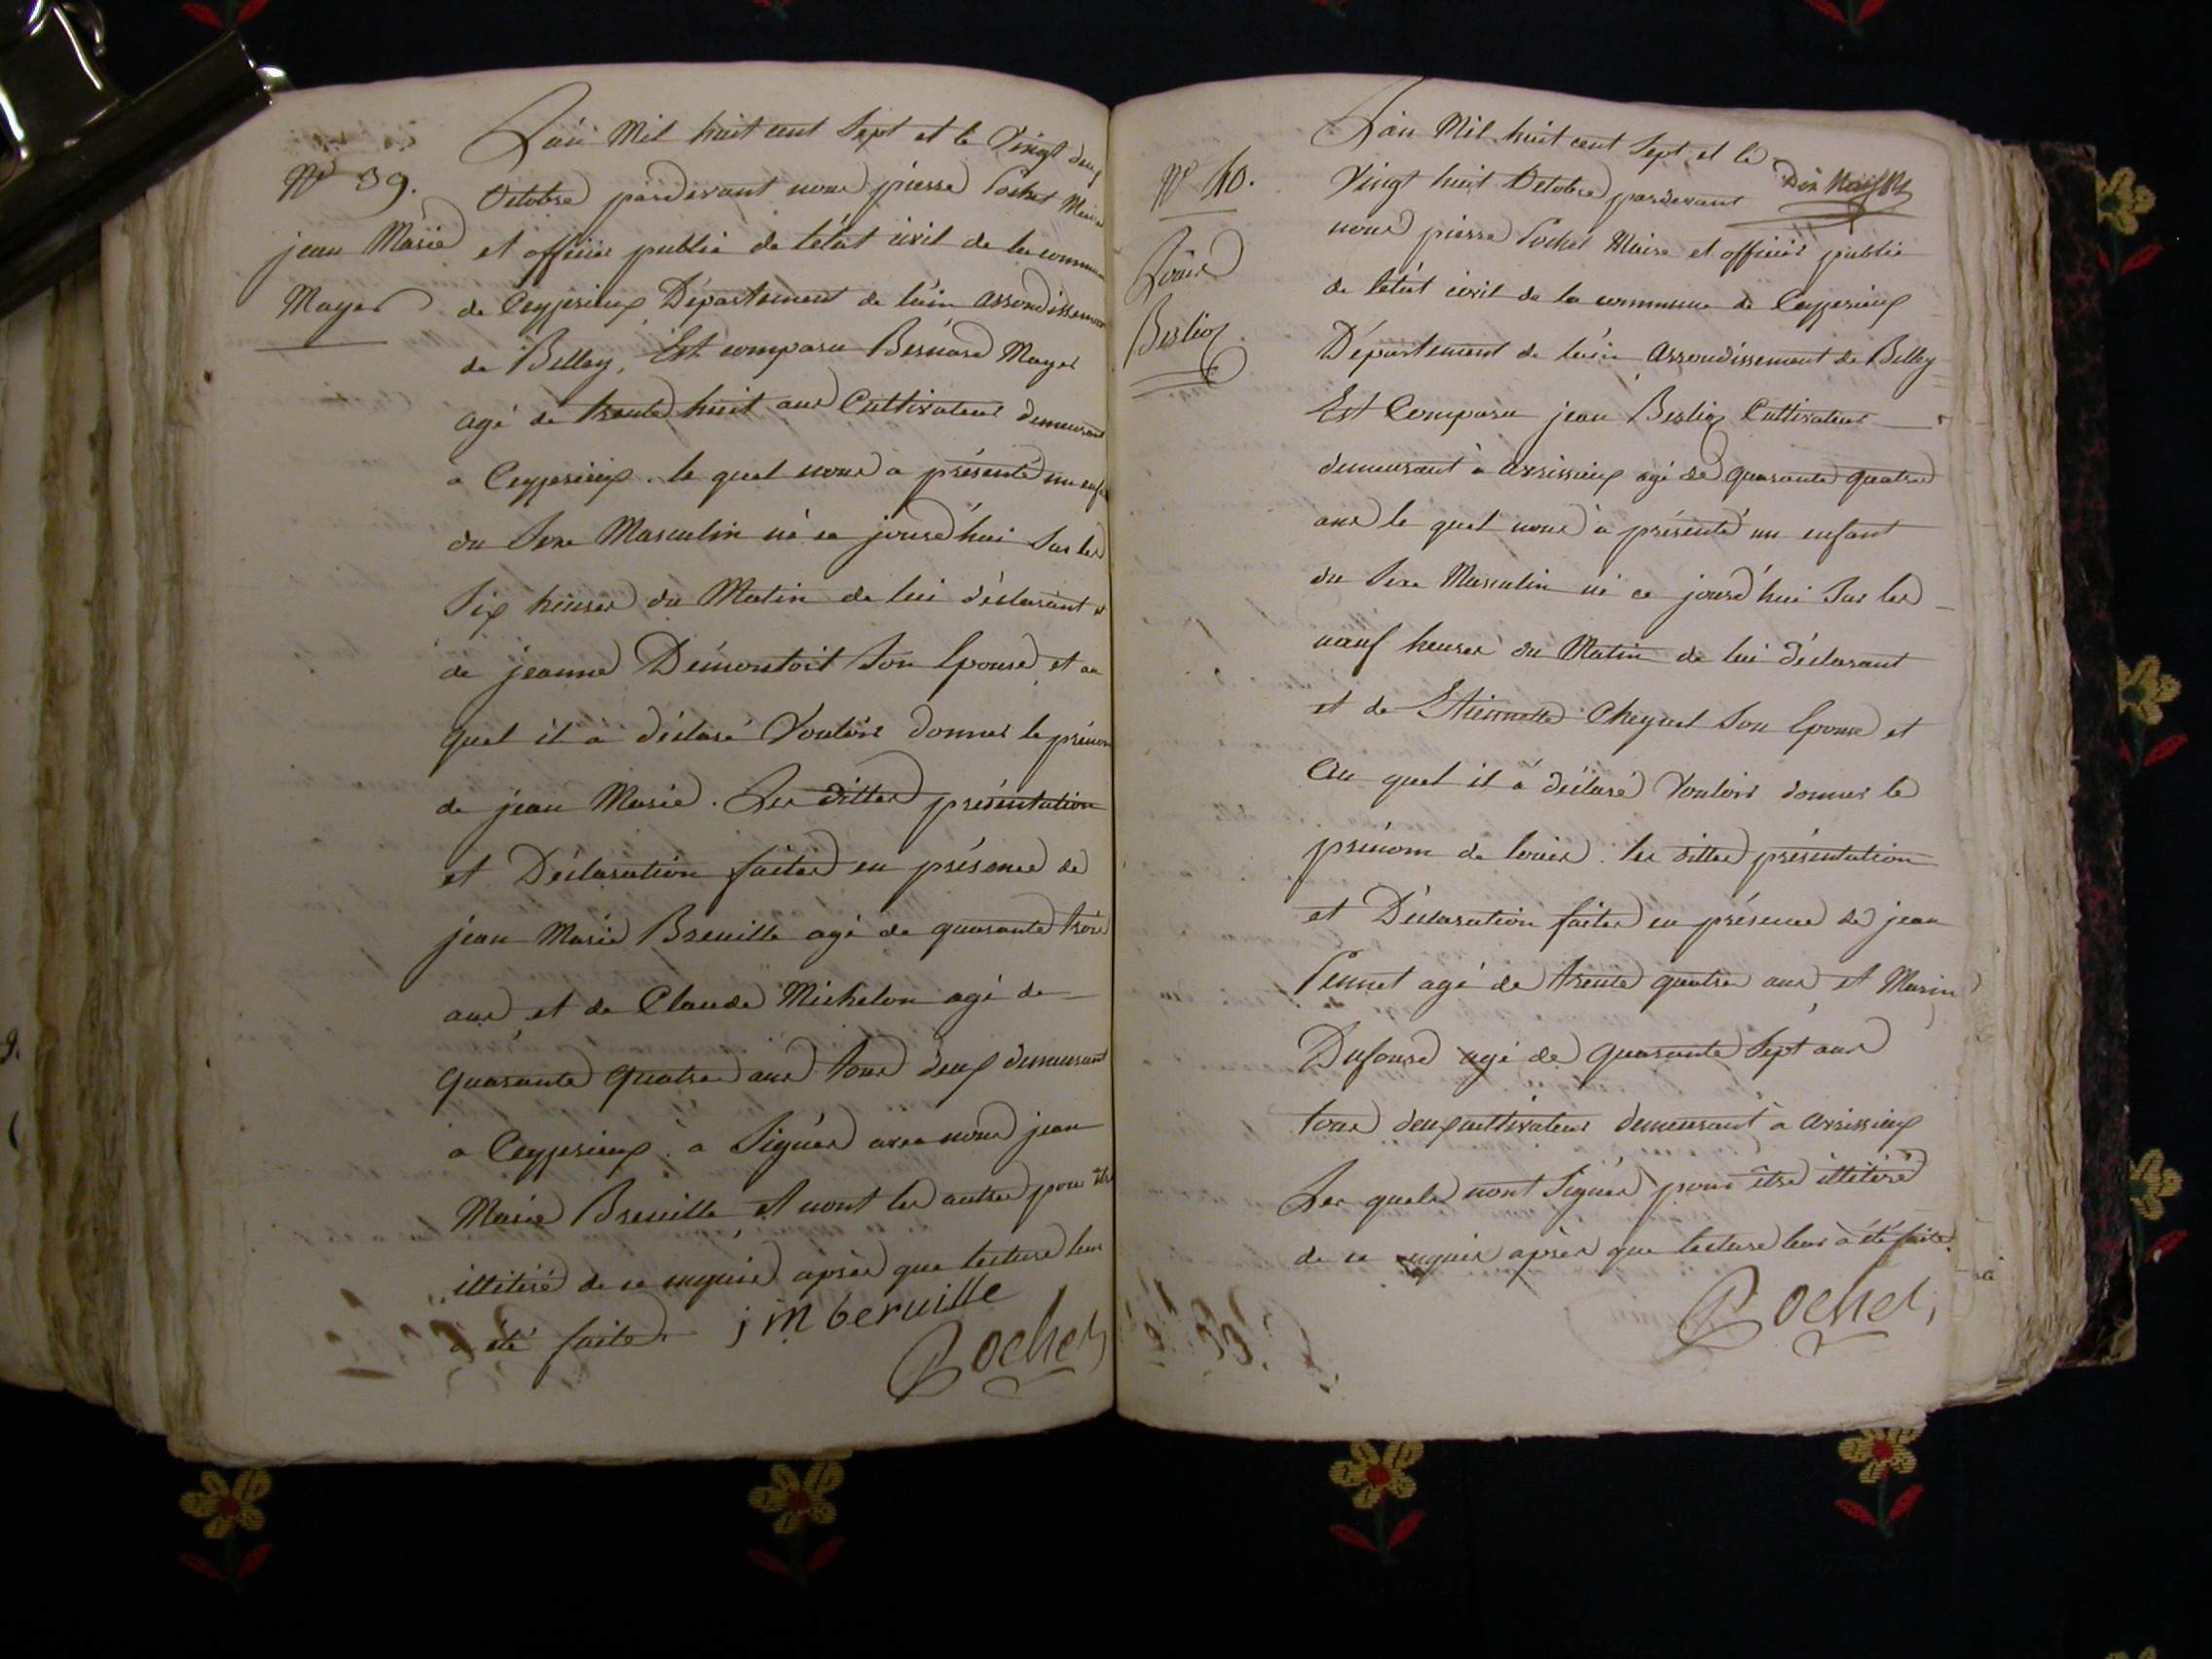 N° 39.
jean Marie
Mayer
L'an Mil huit cent Sept et le Vingt deux
Octobre pardevant nous pierre Pochet Maire
et officier public de l'état civil de la commune
de Ceyzerieux Département de l'ain arrondissement
de Belley, Est comparu Bernard Mayer
agé de trente huit ans Cultivateur demeurant
à Ceyzerieux. le quel nous a présenté un enfant
du Sexe Masculin né ce jourd'hui Sur les
Six heures du Matin de lui déclarant et
de jeanne Démontoit Son Epouse, et au
quel il à déclaré Vouloir donner le prénom
de jean Marie. Les dittes présentation
et Déclaration faites en présence de
jean Marie Breuille agé de quarante trois
ans et de Claude Michelon agé de
quarante quatre ans tous deux demeurant
a Ceyzerieux. a Signés avec nous jean
Marie Breuille, et nont les autres pour être
illitéré de ce enquis après que lecture leur
a été faite. j m beruille
Pochet
N° 40.
Louis
Berlioz
L'an Mil huit cent Sept, et le
Vingt huit Octobre pardevant
nous pierre Pochet Maire et officier public
de l'état civil de la commune de Ceyzerieux
Département de l'ain arrondissement de Belley
Est Comparu jean Berlioz Cultivateur
demeurant à avrissieux agé de quarante quatre
ans le quel nous à présenté un enfant
du Sexe Masculin né ce jourd'hui Sur les
neuf heures du Matin de lui déclarant
et de Etiennette Cheynel Son Epouse et
Au quel il à déclaré Vouloir donner le
prénom de louis. les dittes présentation
et Déclaration faites en présence de jean
Pennet agé de trente quatre ans et Marin
Dufour agé de quarante Sept ans
tous deux cultivateur demeurant à avrissieux
Les quels nont Signés pour être illitéré
de ce enquis après que lecture leur à été faite.
Pochet